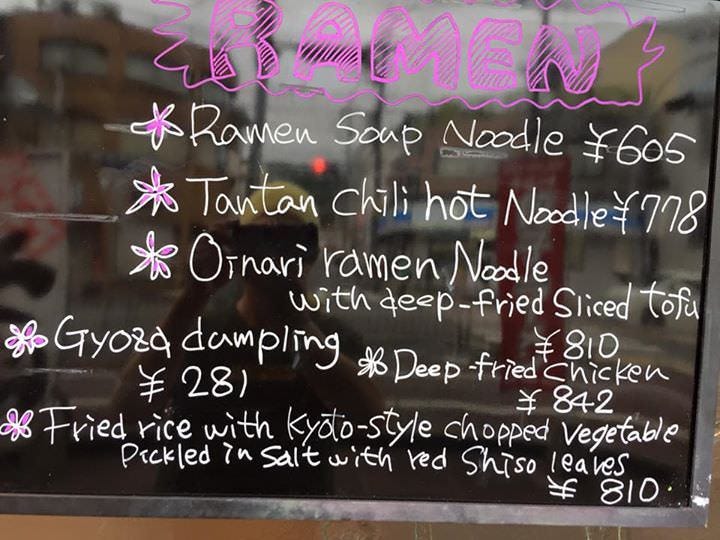 RAMEN
Ramen Soup Noodle ¥605
Tantan chili hot Noodle ¥778
Oinari ramen Noodle
with deep-fried Sliced tofu
¥810
Gyoza dampling
¥281
Deep-fried Chicken
¥842
Fried rice with Kyoto-style chopped vegetable
Pickled in Salt with red Shiso leaves
¥810